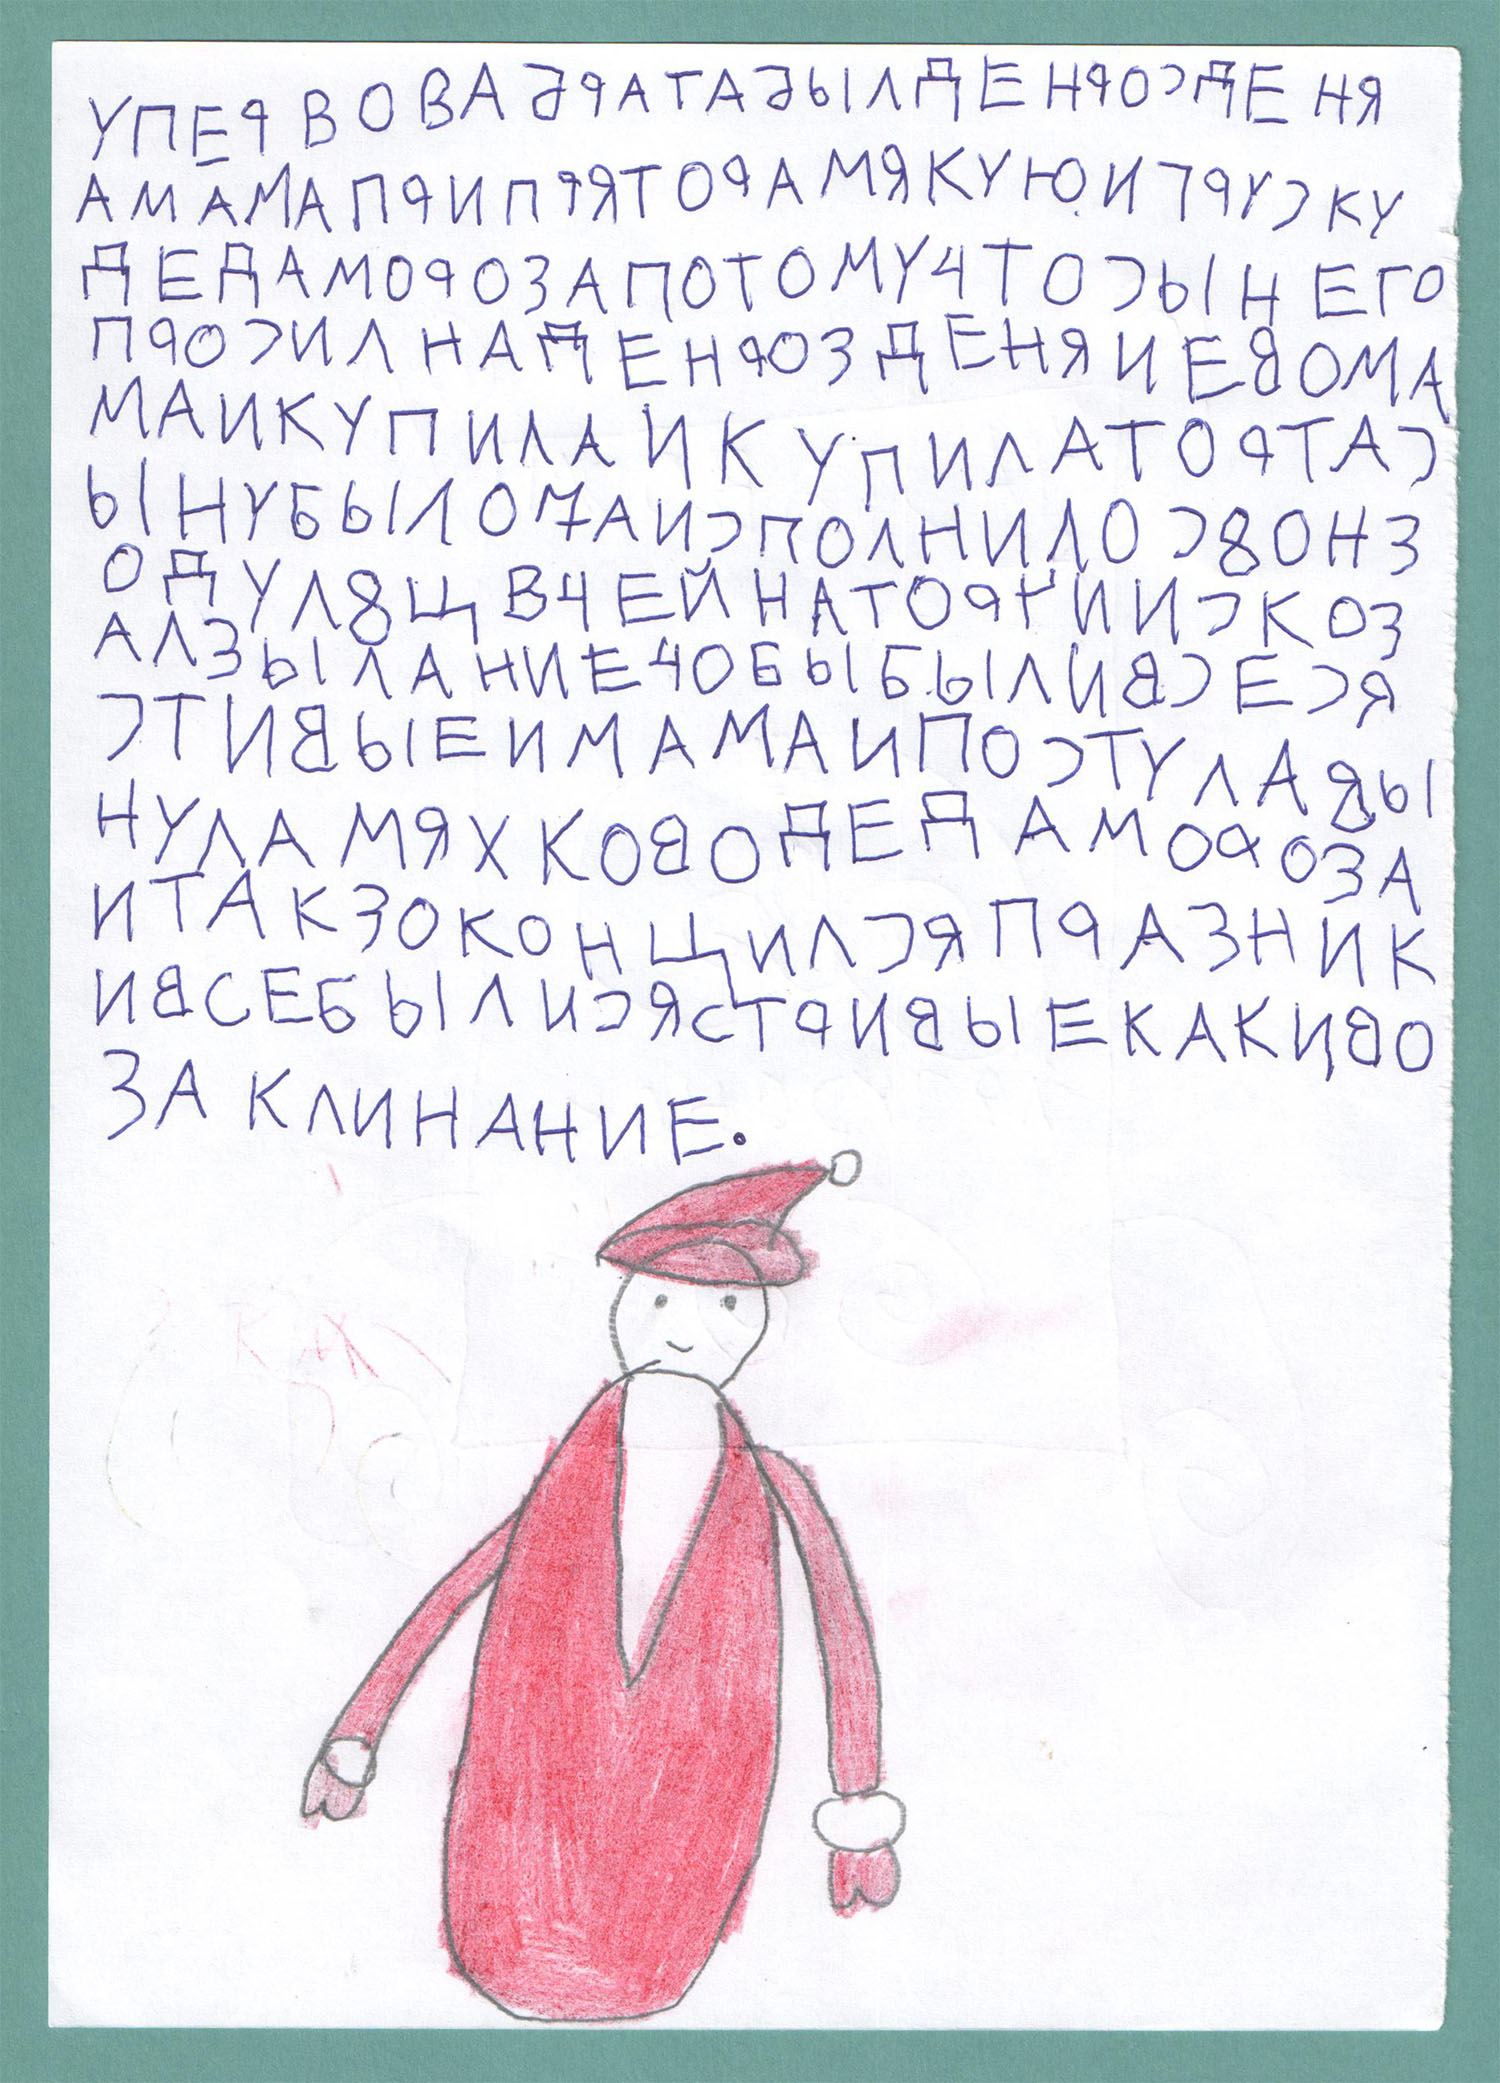 УПЕРВОВАБРАТАБЫЛДЕНРОСДЕНЯ
АМАМАПРИПРЯТОРАМЯКУЮИГРУСКУ
ДЕДАМОРОЗАПОТОМУЧТОСЫНЕГО
ПРОСИЛНАДЕНРОЗДЕНЯИЕВОМА
МАИКУПИЛАИКУПИЛАТОРТАС
ЫНУБЫЛО7АИСПОЛНИЛОСВОНЗ
ОДУЛЯЩВЧЕЙНАТОРНИИСКОЗ
АЛЗЫЛАНИЕЧОБЫБЫЛИВСЕСЯ
СТИВЫЕИМАМАИПОСТУЛАВЫ
НУЛАМЯХКОВОДЕДАМОРОЗА
ИТАКЗОКОНЩИЛСЯПРАЗНИК
ИВСЕБЫЛИСЯСТРИВЫЕКАКИВО
ЗАКЛИНАНИЕ.